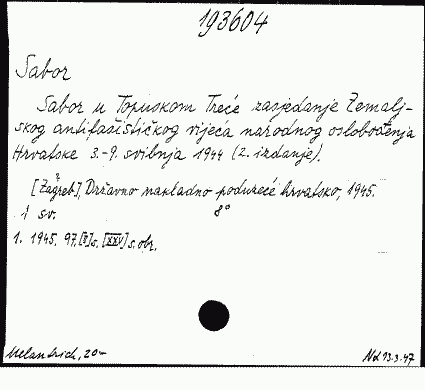 193604
Sabor
Sabor u Topuskom Treće zasjedanje Zemalj-
skog antifašističkog vijeća narodnog oslobođenja
Hrvatske 3.-9. svibnja 1944 (2. izdanje).
[Zagreb], Državno nakladno poduzeće Hrvatske, 1945.
1 sv. 8°
1. 1945. 97,[I]s, [XXV] s. obr.
Melantrich, 20-
Nd 13.3.47